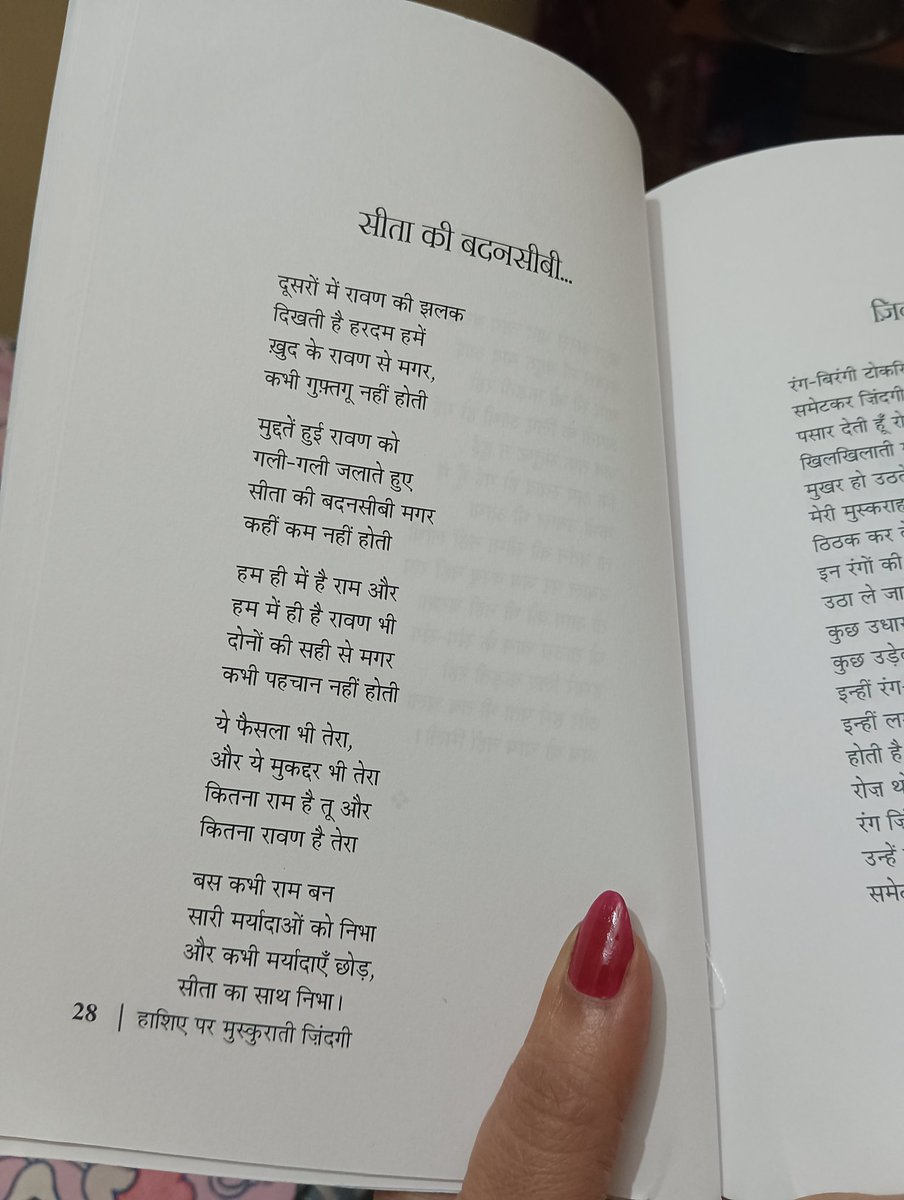 सीता की बदनसीबी...
दूसरों में रावण की झलक
दिखती है हरदम हमें
ख़ुद के रावण से मगर,
कभी गुफ़्तगू नहीं होती
मुद्दतें हुई रावण को
गली-गली जलाते हुए
सीता की बदनसीबी मगर
कहीं कम नहीं होती
हम ही में है राम और
हम में ही है रावण भी
दोनों की सही से मगर
कभी पहचान नहीं होती
ये फैसला भी तेरा,
और ये मुकद्दर भी तेरा
कितना राम है तू और
कितना रावण है तेरा
बस कभी राम बन
सारी मर्यादाओं को निभा
और कभी मर्यादाएँ छोड़,
सीता का साथ निभा।
28 | हाशिए पर मुस्कुराती ज़िंदगी
रंग-बिरंगी
समेटकर ज़िंदगी
पसार देती हूँ
खिलखिलाती
मुखर हो
मेरी
ठिठक कर
इन रंगों की
उठा ले
कुछ
कुछ
इन्हीं
इन्हीं
होती है
रोज़
रंग
उन्हें